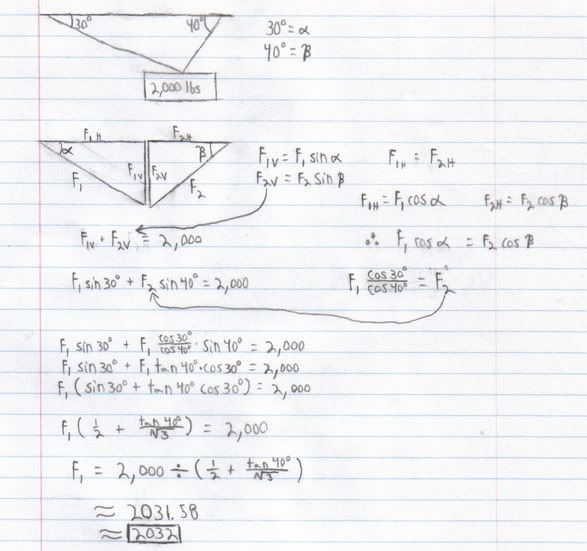 30° 40°
30° = α
40° = β
2,000 lbs
F1H F2H
α F1V F2V β
F1 F2
F1V = F1 sin α
F2V = F2 sin β
F1H = F2H
F1H = F1 cos α F2H = F2 cos β
F1V + F2V = 2,000
∴ F1 cos α = F2 cos β
F1 sin 30° + F2 sin 40° = 2,000
F1 cos 30°/cos 40° = F2
F1 sin 30° + F1 cos 30°/cos 40° · sin 40° = 2,000
F1 sin 30° + F1 tan 40° · cos 30° = 2,000
F1 (sin 30° + tan 40° cos 30°) = 2,000
F1 (1/2 + tan 40°/√3) = 2,000
F1 = 2,000 ÷ (1/2 + tan 40°/√3)
≈ 2031.58
≈ 2032